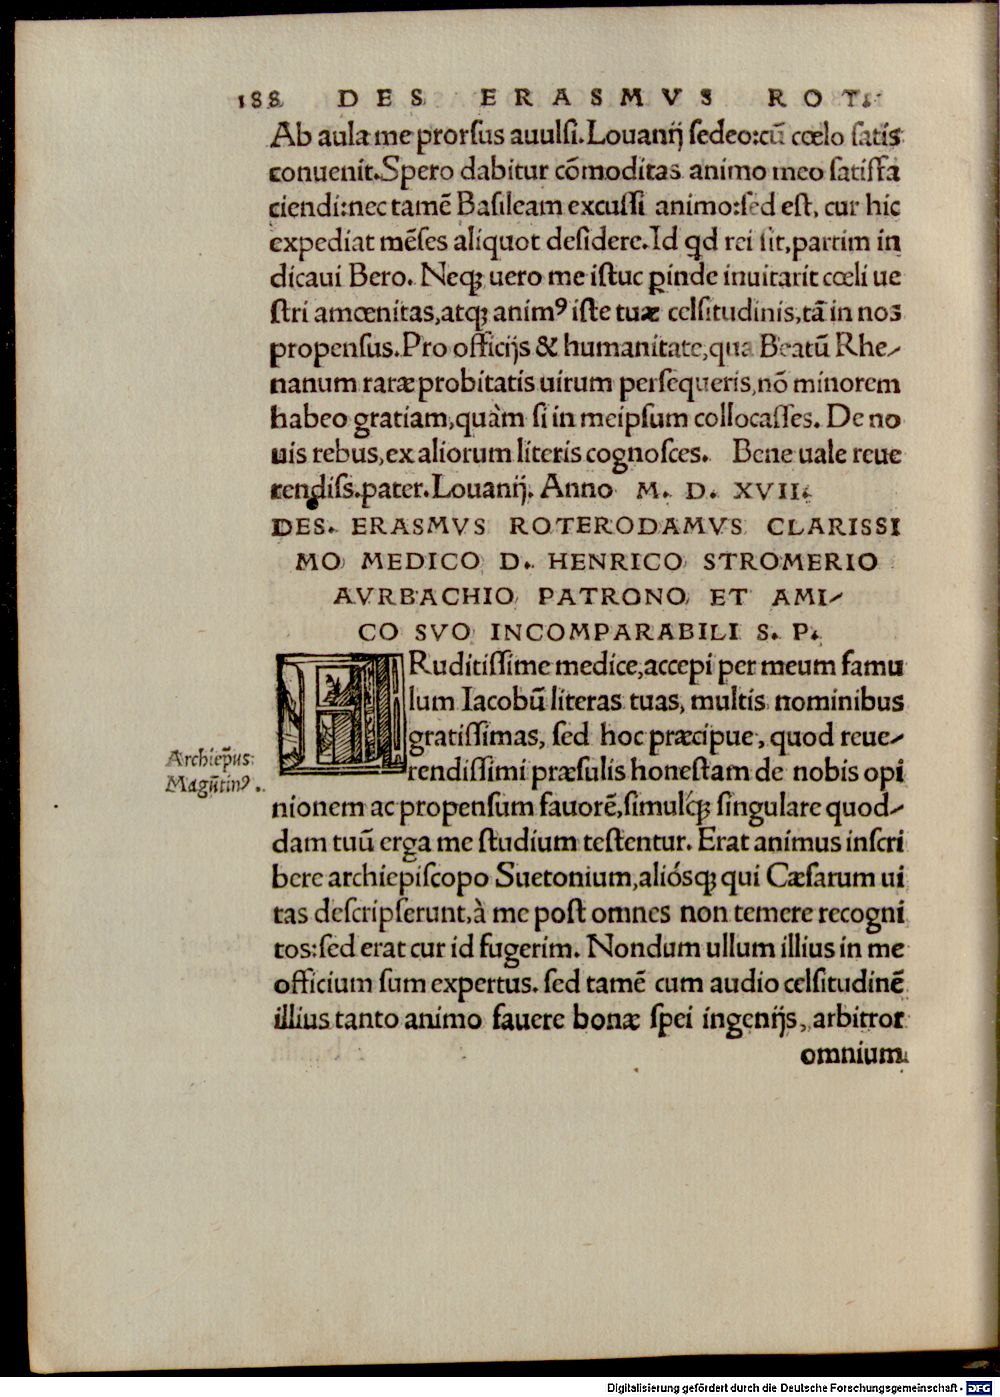 188 DES ERASMVS ROT.
Ab aula me prorsus auulsi. Louanij sedeo: cū cœlo satis
conuenit. Spero dabitur cōmoditas animo meo satisfa
ciendi: nec tamē Basileam excussi animo: sed est, cur hic
expediat mēses aliquot desidere. Id qd rei sit, partim in
dicaui Bero. Neqꝫ uero me istuc ꝑinde inuitarit cœli ue
stri amœnitas, atqꝫ animꝰ iste tuæ celsitudinis, tā in nos
propensus. Pro officijs & humanitate, qua Beatū Rhe/
nanum raræ probitatis uirum persequeris, nō minorem
habeo gratiam, quàm si in meipsum collocasses. De no
uis rebus, ex aliorum literis cognosces. Bene uale reue
rendiss. pater. Louanij. Anno M. D. XVII.
DES. ERASMVS ROTERODAMVS CLARISSI
MO MEDICO D. HENRICO STROMERIO
AVRBACHIO PATRONO ET AMI/
CO SVO INCOMPARABILI S. P.
ERuditissime medice, accepi per meum famu
lum Iacobū literas tuas, multis nominibus
gratissimas, sed hoc præcipue, quod reue/
rendissimi præsulis honestam de nobis opi
Archiep̄us
Magūtinꝰ.
nionem ac propensum fauorē, simulqꝫ singulare quod/
dam tuū erga me studium testentur. Erat animus inscri
bere archiepiscopo Suetonium, aliósqꝫ qui Cæsarum ui
tas descripserunt, à me post omnes non temere recogni
tos: sed erat cur id fugerim. Nondum ullum illius in me
officium sum expertus. sed tamē cum audio celsitudinē
illius tanto animo fauere bonæ spei ingenijs, arbitror
omnium
Digitalisierung gefördert durch die Deutsche Forschungsgemeinschaft - DFG